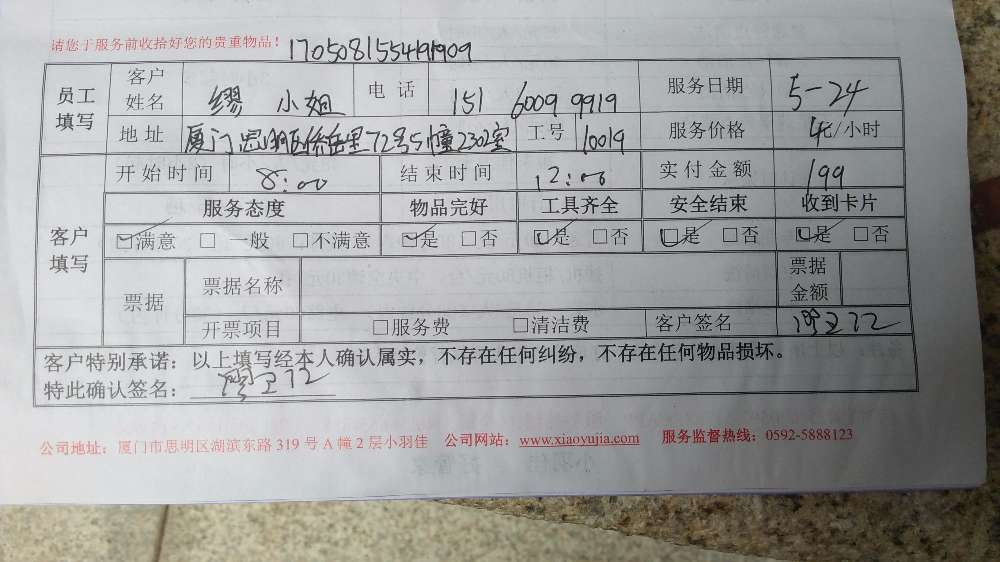 请您于服务前收拾好您的贵重物品! 170508155491909
员工填写 客户姓名 缪 小姐 电 话 151 6009 9919 服务日期 5-24
地 址 厦门思明区 72号5幢2302室 工号 10019 服务价格 /小时
客户填写 开 始 时 间 8:00 结 束 时 间 12:00 实 付 金 额 199
服务态度 物品完好 工具齐全 安全结束 收到卡片
☑满意 □ 一般 □不满意 ☑是 □否 ☑是 □否 ☑是 □否 ☑是 □否
票据 票据名称 票据金额
开票项目 □服务费 □清洁费 客户签名
客户特别承诺：以上填写经本人确认属实，不存在任何纠纷，不存在任何物品损坏。
特此确认签名：
公司地址：厦门市思明区湖滨东路 319 号 A 幢 2 层小羽佳 公司网站：www.xiaoyujia.com 服务监督热线：0592-5888123